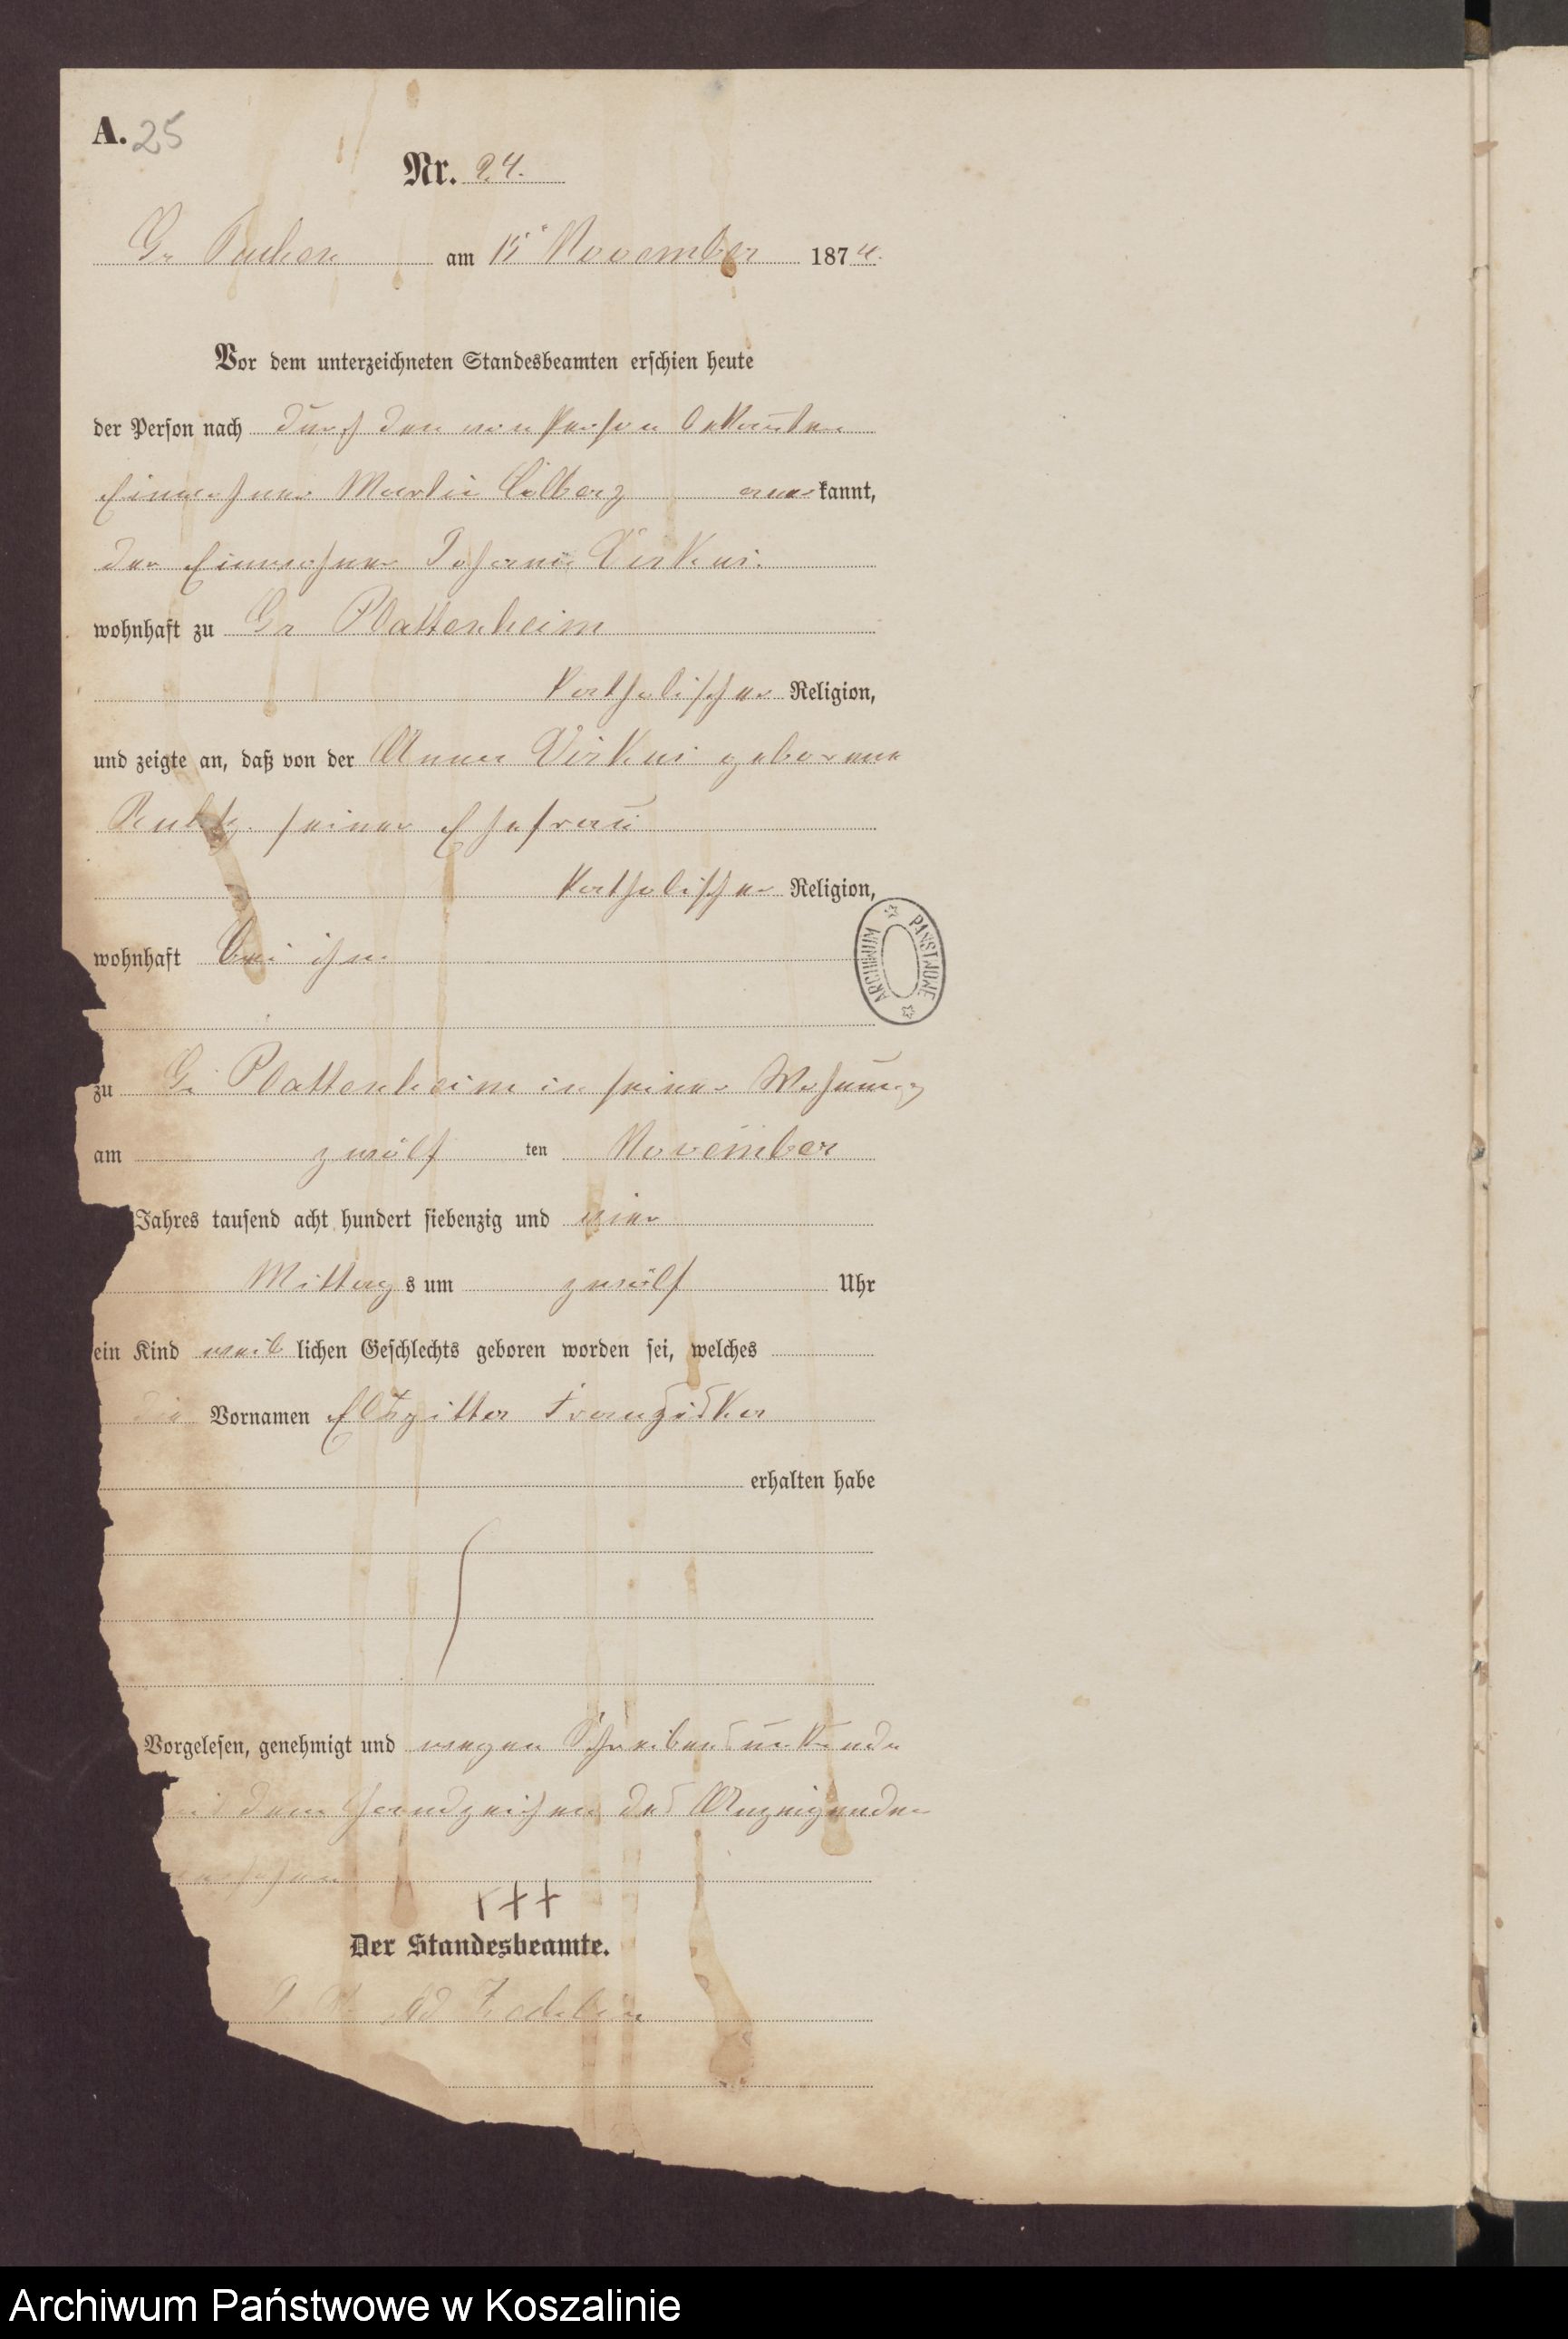 A. 25
Nr. 24.
Gr Tuchen am 15 November 1874.
Vor dem unterzeichneten Standesbeamten erschien heute
der Person nach durch den von Person bekannten
Einwohner Martin erkannt,
der Einwohner Johann Virkus
wohnhaft zu Gr Plattenheim
katholischer Religion,
und zeigte an, daß von der Anna Virkus geborene
seiner Ehefrau
katholischer Religion,
wohnhaft bei ihm
ARCHIWUM PAŃSTWOWE
zu Gr Plattenheim in seiner Wohnung
am zwölf ten November
Jahres tausend acht hundert siebenzig und vier
Mittags um zwölf Uhr
ein Kind weiblichen Geschlechts geboren worden sei, welches
die Vornamen Franziska
erhalten habe
Vorgelesen, genehmigt und wegen Schreibensunkunde
mit dem Handzeichen des Anzeigenden
versehen
+++
Der Standesbeamte.
Archiwum Państwowe w Koszalinie